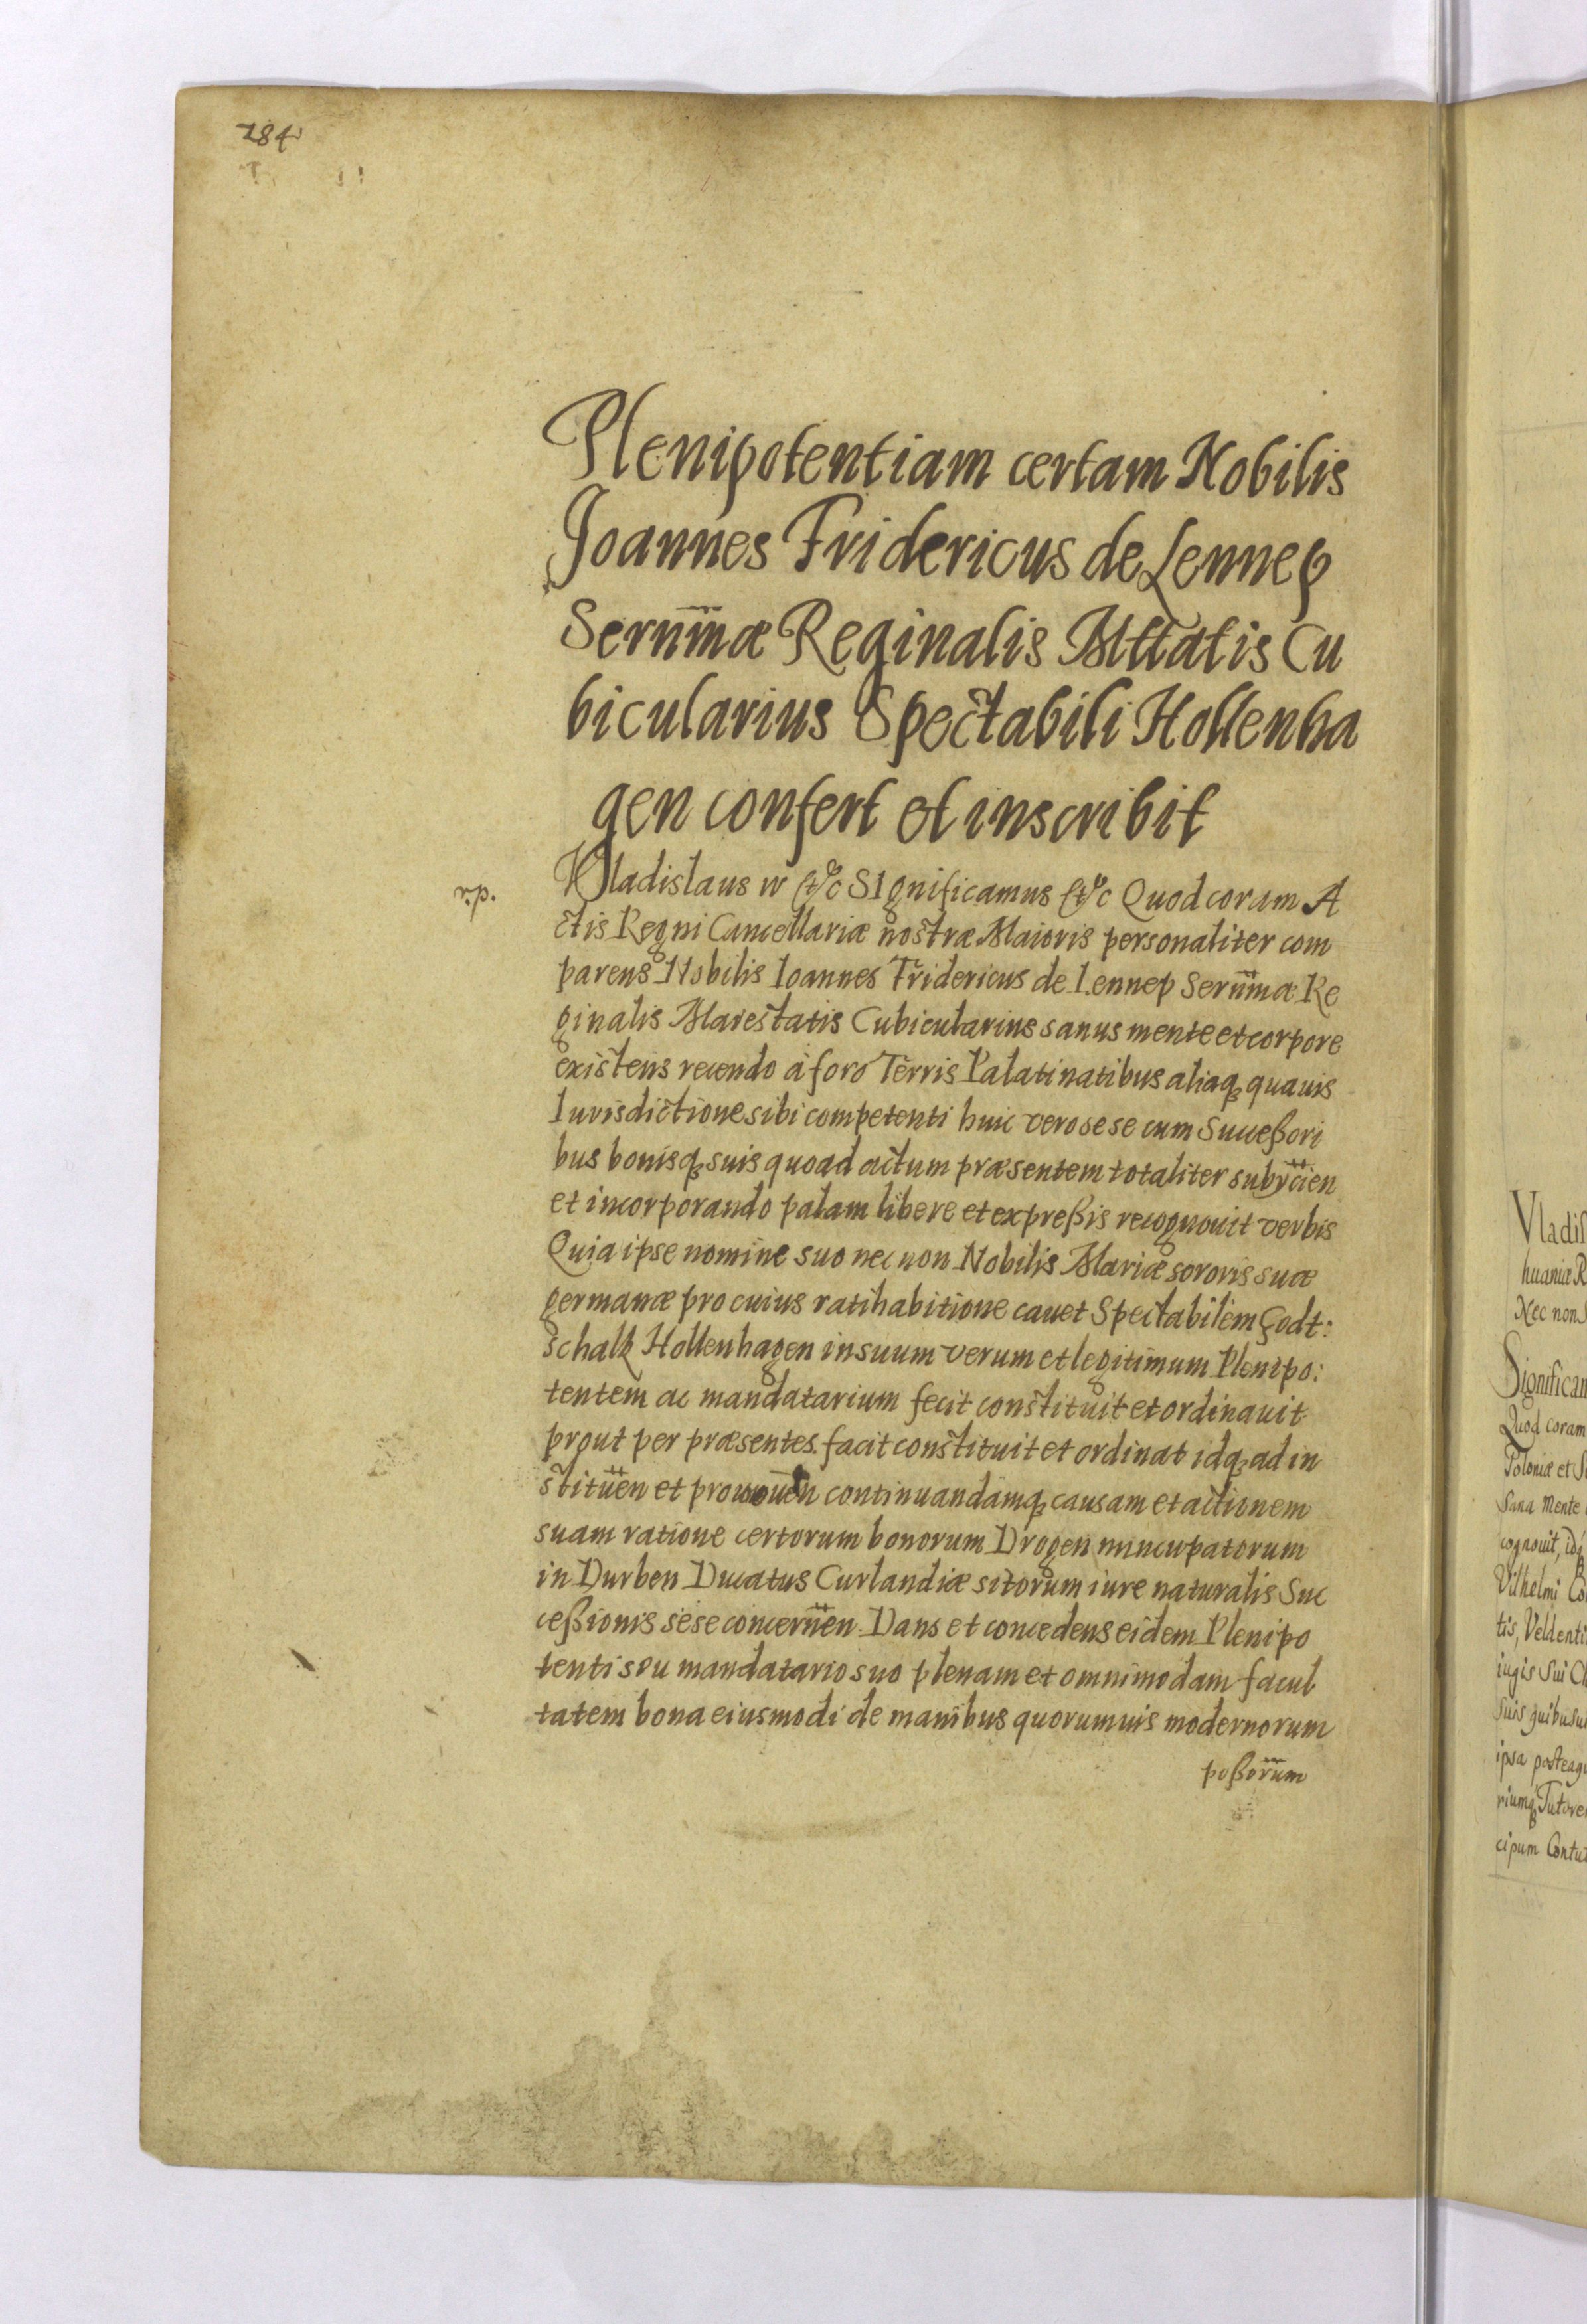 284
Plenipotentiam certam Nobilis
Joannes Fridericus de Lennep
Sernm̃æ Reginalis Mttatis Cu
bicularius Spectabili Hollenha
gen confert et inscribit
r.p.
Vladislaus IV etc SIgnificamus etc Quod coram A
ctis Regni Cancellariæ nostræ Maioris personaliter com
parens Nobilis Ioannes Fridericus de Lennep Sernm̃æ Re
ginalis Maiestatis Cubicularius sanus mente et corpore
existens recendo à foro Terris Palatinatibus aliaq quavis
Iurisdictione sibi competenti huic vero sese cum Succeßori
bus bonisq suis quoad actum præsentem totaliter subÿcien
et incorporando palam libere et expreßis recognouit verbis
Quia ipse nomine suo nec non Nobilis Mariæ sororis suæ
germanæ pro cuius ratihabitione cauet Spectabilem Godt:
schalk Hollenhagen in suum verum et legitimum Plenipo:
tentem ac mandatarium fecit constituit et ordinauit
prout per præsentes facit constituit et ordinat idq ad in
stituen̈ et continuandamq causam et actionem
suam ratione certorum bonorum Drogen nuncupatorum
in Durben Ducatus Curlandiæ sitorum iure naturalis Suc
ceßionis sese concernen̈ Dans et concedens eidem Plenipo
tenti seu mandatario suo plenam et omnimodam facul
tatem bona eiusmodi de manibus quorumuis modernorum
poßorum̃
Vladis
huaniæ R
Nec non S
Significam
Quod coram
Poloniæ et S
Sana mente
cognouit, idq
Vilhelmi Co
tis, Veldenti
iugis Sui C
Suis quibusu
ipsa posteaq
riumq Tutore
cipum Contut